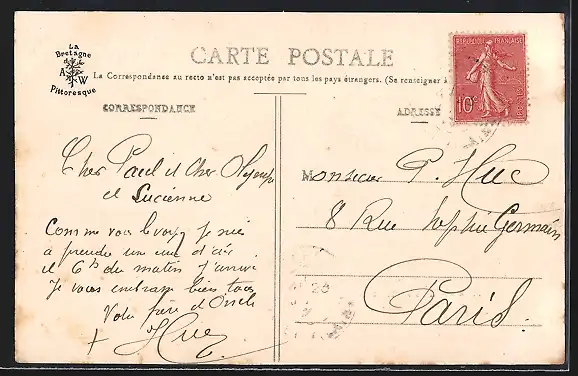 La
Bretagne
A W
Pittoresque
CARTE POSTALE
La Correspondance au recto n'est pas acceptée par tous les pays étrangers. (Se renseigner à
CORRESPONDANCE
ADRESSE
REPUBLIQUE FRANÇAISE
10c
POSTES
Cher Paul et Cher Olympe
et Lucienne
Comme vous le voyez je suis
a prendre un
il 6h du matin J'arrive
Je vous embrasse bien tous
Votre frère et Oncle
Huc
Monsieur P. Huc
8 Rue Sophie Germain
Paris.